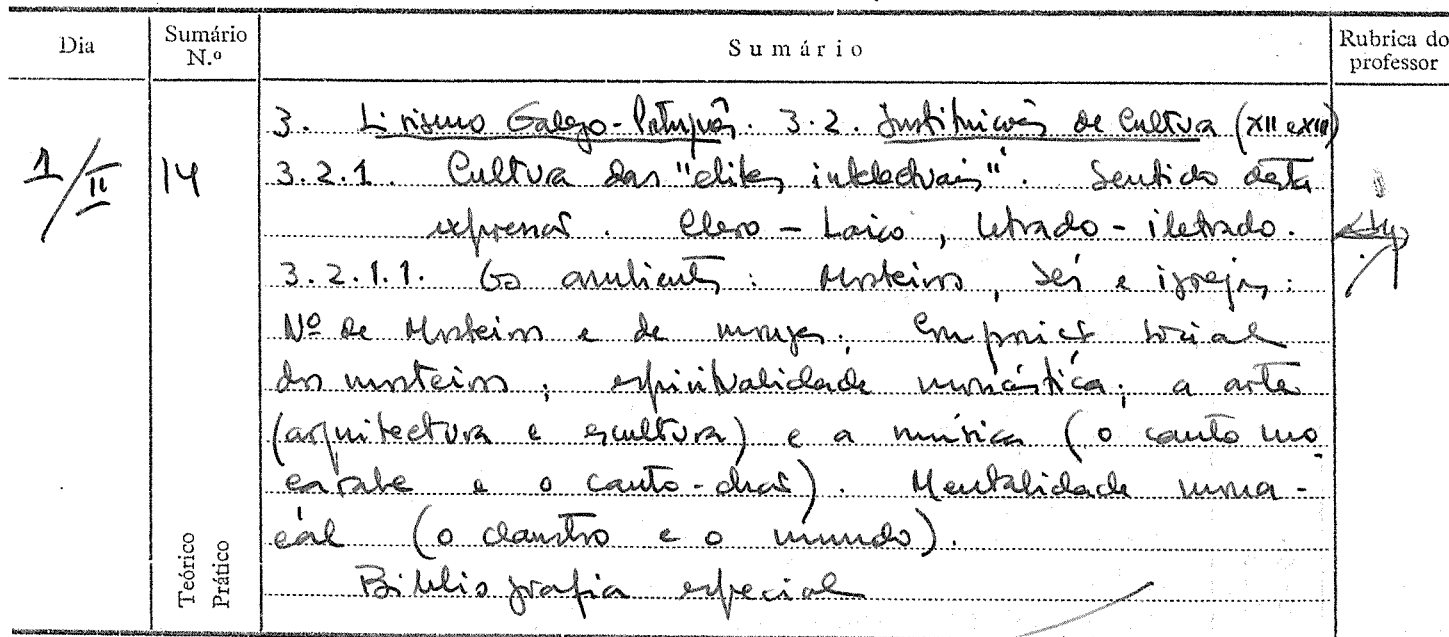 Dia
Sumário N.º
Sumário
Rubrica do professor
1/II
14
3. Lirismo Galego-Português. 3.2. Instituições de Cultura (XII e XIII)
3.2.1. Cultura das "elites intelectuais". Sentido desta
expressão. Clero - Laico, letrado - iletrado.
3.2.1.1. Os ambientes: Mosteiros, Sés e igrejas:
Nº de Mosteiros e de monges. social
dos mosteiros; espiritualidade monástica; a arte
(arquitectura e escultura) e a música (o canto mo
çarabe e o canto-chão). Mentalidade mona-
cal (o claustro e o mundo).
Bibliografia especial
Teórico
Prático